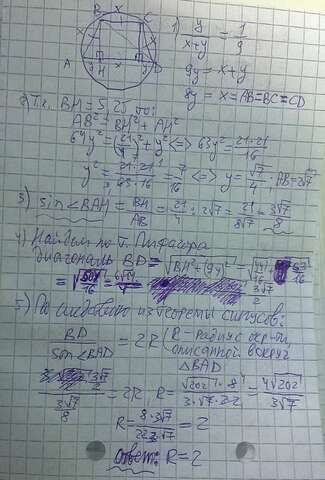 B x C
x
A y H x y D
1) y/(x+y) = 1/9
9y = x+y
8y = x = AB = BC = CD
2) Т.к. BH = 5,25 то:
AB² = BH² + AH²
64y² = (21/4)² + y² <=> 63y² = 21·21/16
y² = 21·21/63·16 = 7/16 <=> y = √7/4 · AB = 2√7
3) sin∠BAH = BH/AB = 21/4 : 2√7 = 21/8√7 = 3√7/8
4) Найдём по т. Пифагора
диагональ BD = √BH² + (9y)² =
5) По следствию из теоремы синусов:
BD/sin∠BAD = 2R (R - радиус окружн.
описанной вокруг
△BAD)
= 2R, R =
R = = 2
Ответ: R = 2